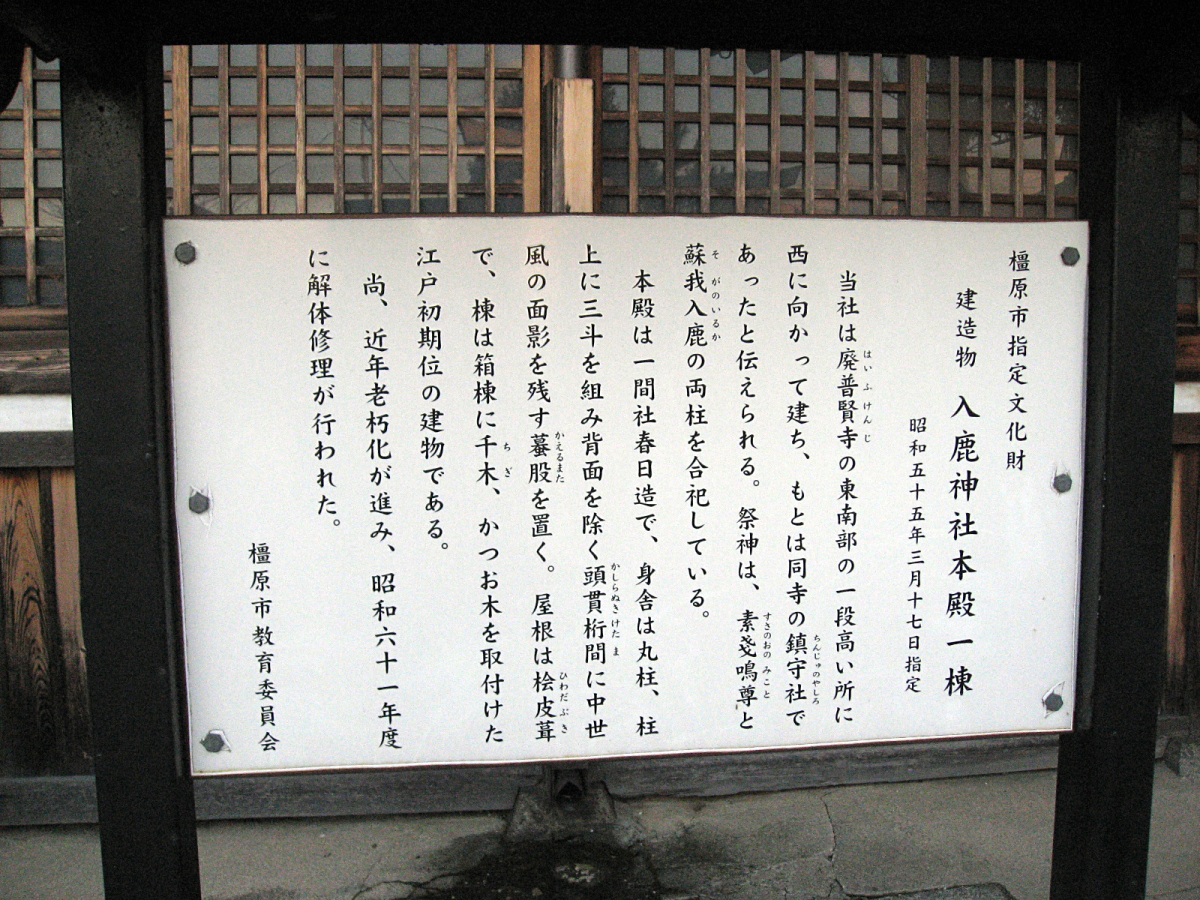 橿原市指定文化財
建造物 入鹿神社本殿一棟
昭和五十五年三月十七日指定
当社は廃普賢寺の東南部の一段高い所に
西に向かって建ち、もとは同寺の鎮守社で
あったと伝えられる。祭神は、素戔嗚尊と
蘇我入鹿の両柱を合祀している。
本殿は一間社春日造で、身舎は丸柱、柱
上に三斗を組み背面を除く頭貫桁間に中世
風の面影を残す蟇股を置く。屋根は桧皮葺
で、棟は箱棟に千木、かつお木を取付けた
江戸初期位の建物である。
尚、近年老朽化が進み、昭和六十一年度
に解体修理が行われた。
橿原市教育委員会